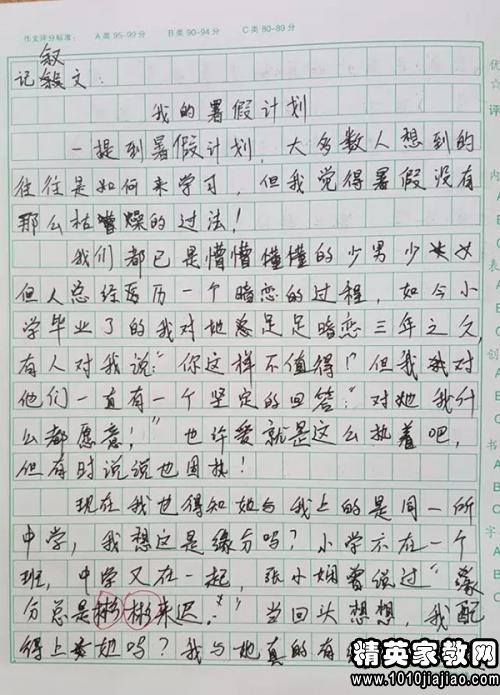 作文评分标准: A类95-99分 B类90-94分 C类80-89分
叙
记文
我的暑假计划
一提到暑假计划,大多数人想到的
往往是如何来学习,但我觉得暑假没有
那么枯燥的过法!
我们都已是懵懵懂懂的少男少女
但人总经历一个暗恋的过程,如今小
学毕业了的我对她足足暗恋三年之久,
有人对我说:“你这样不值得!”但我对
他们一直有一个坚定的回答:“对她我什
么都愿意!”也许爱就是这么执着吧,
但有时说说也固执!
现在我也得知她与我上的是同一所
中学,我想这是缘分吗?小学不在一个
班,中学又在一起,张小娴曾说过“缘
分总是彬彬来迟。”当回头想想,我配
得上她吗?我与她真的有
优
评
内
表
创
书
字
精英家教网
www.1010jiajiao.com